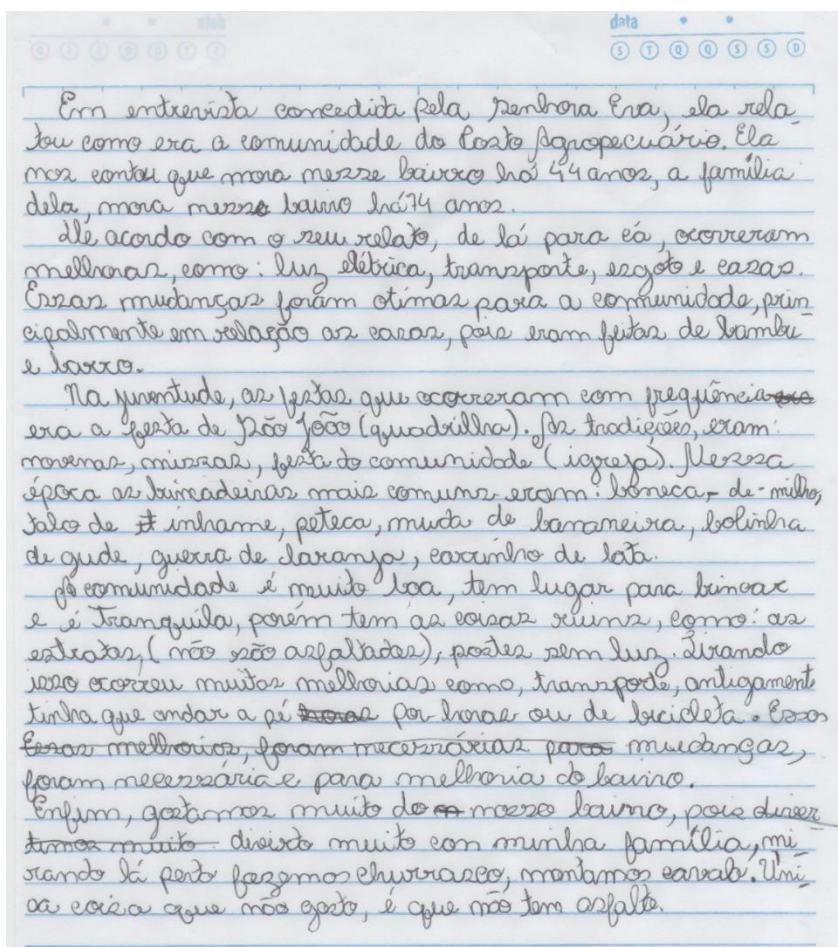 data
S T Q Q S S D
Em entrevista concedida pela senhora Eva, ela rela
tou como era a comunidade do Posto Agropecuário. Ela
nos contou que mora nesse bairro há 44 anos, a família
dela, mora nesse bairro há 74 anos.
De acordo com o seu relato, de lá para cá, ocorreram
melhoras, como: luz elétrica, transporte, esgoto e casas.
Essas mudanças foram otimas para a comunidade, prin
cipalmente em relação as casas, pois eram feitas de bambu
e barro.
Na juventude, as festas que ocorreram com frequência
era a festa de São João (quadrilha). As tradições, eram:
novenas, missas, festa da comunidade (igreja). Nessa
época as brincadeiras mais comuns eram: boneca-de-milho,
talo de inhame, peteca, muda de bananeira, bolinha
de gude, guerra de laranja, carrinho de lata.
A comunidade é muito boa, tem lugar para brincar
e é Tranquila, porém tem as coisas ruins, como: as
estratas, (não são asfaltadas), postes sem luz. Tirando
isso ocorreu muitas melhorias como, transporte, antigament
tinha que andar a pé por horas ou de bicicleta. Essas
Essas melhorias, foram necessárias para mudanças,
foram necessária e para melhoria do bairro.
Enfim, gostamos muito do nosso bairro, pois diver
timos muito divirto muito con minha família, mi
rando lá perto fazemos churrasco, montamos cavalo. Úni
ca coisa que não gosto, é que não tem asfalto.